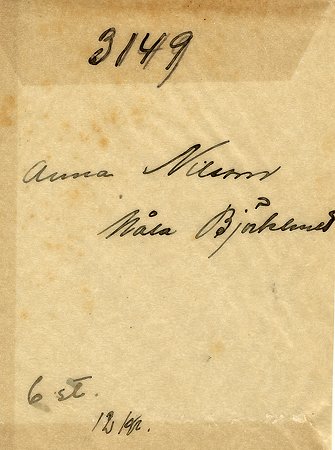 3149
Anna Nilsson
Nåsa Björklund
6 st.
12 kpr.